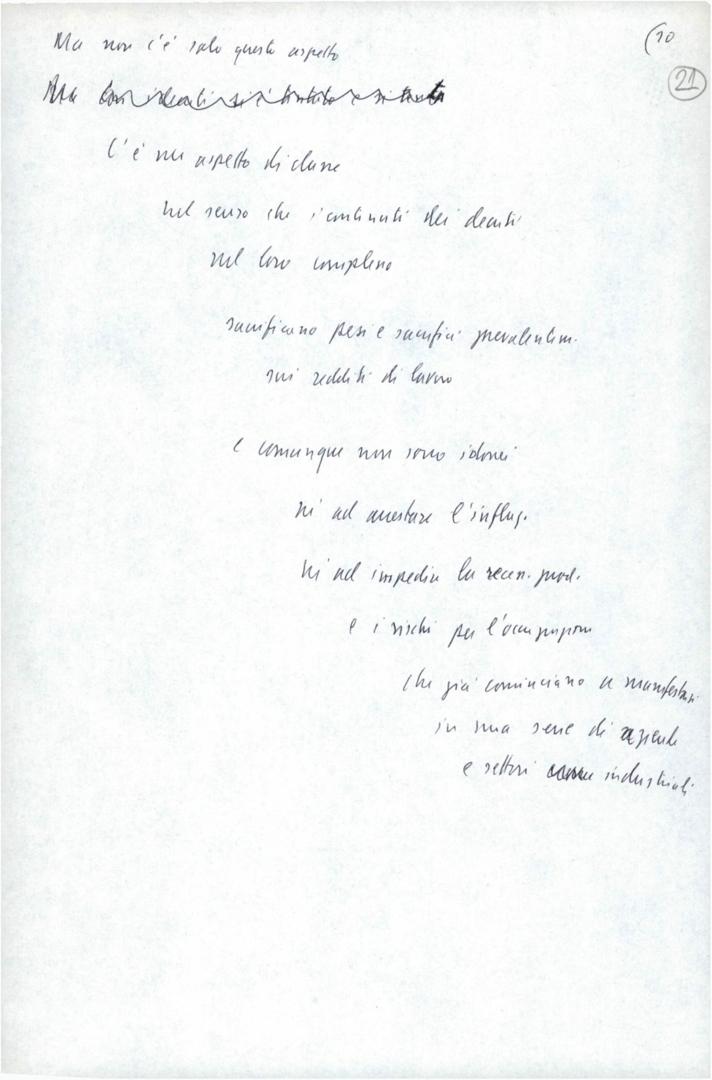 (10
21
Ma non c'è solo questo aspetto
Ma con i decreti si è tentato e si tenta
C'è un aspetto di classe
nel senso che i contenuti dei decreti
nel loro complesso
sacrificano pesi e sacrifici prevalentem.
sui redditi di lavoro
e comunque non sono idonei
né ad arrestare l'inflaz.
né ad impedire la recess. prod.
e i rischi per l'occupazione
che già cominciano a manifestarsi
in una serie di aziende
e settori industriali